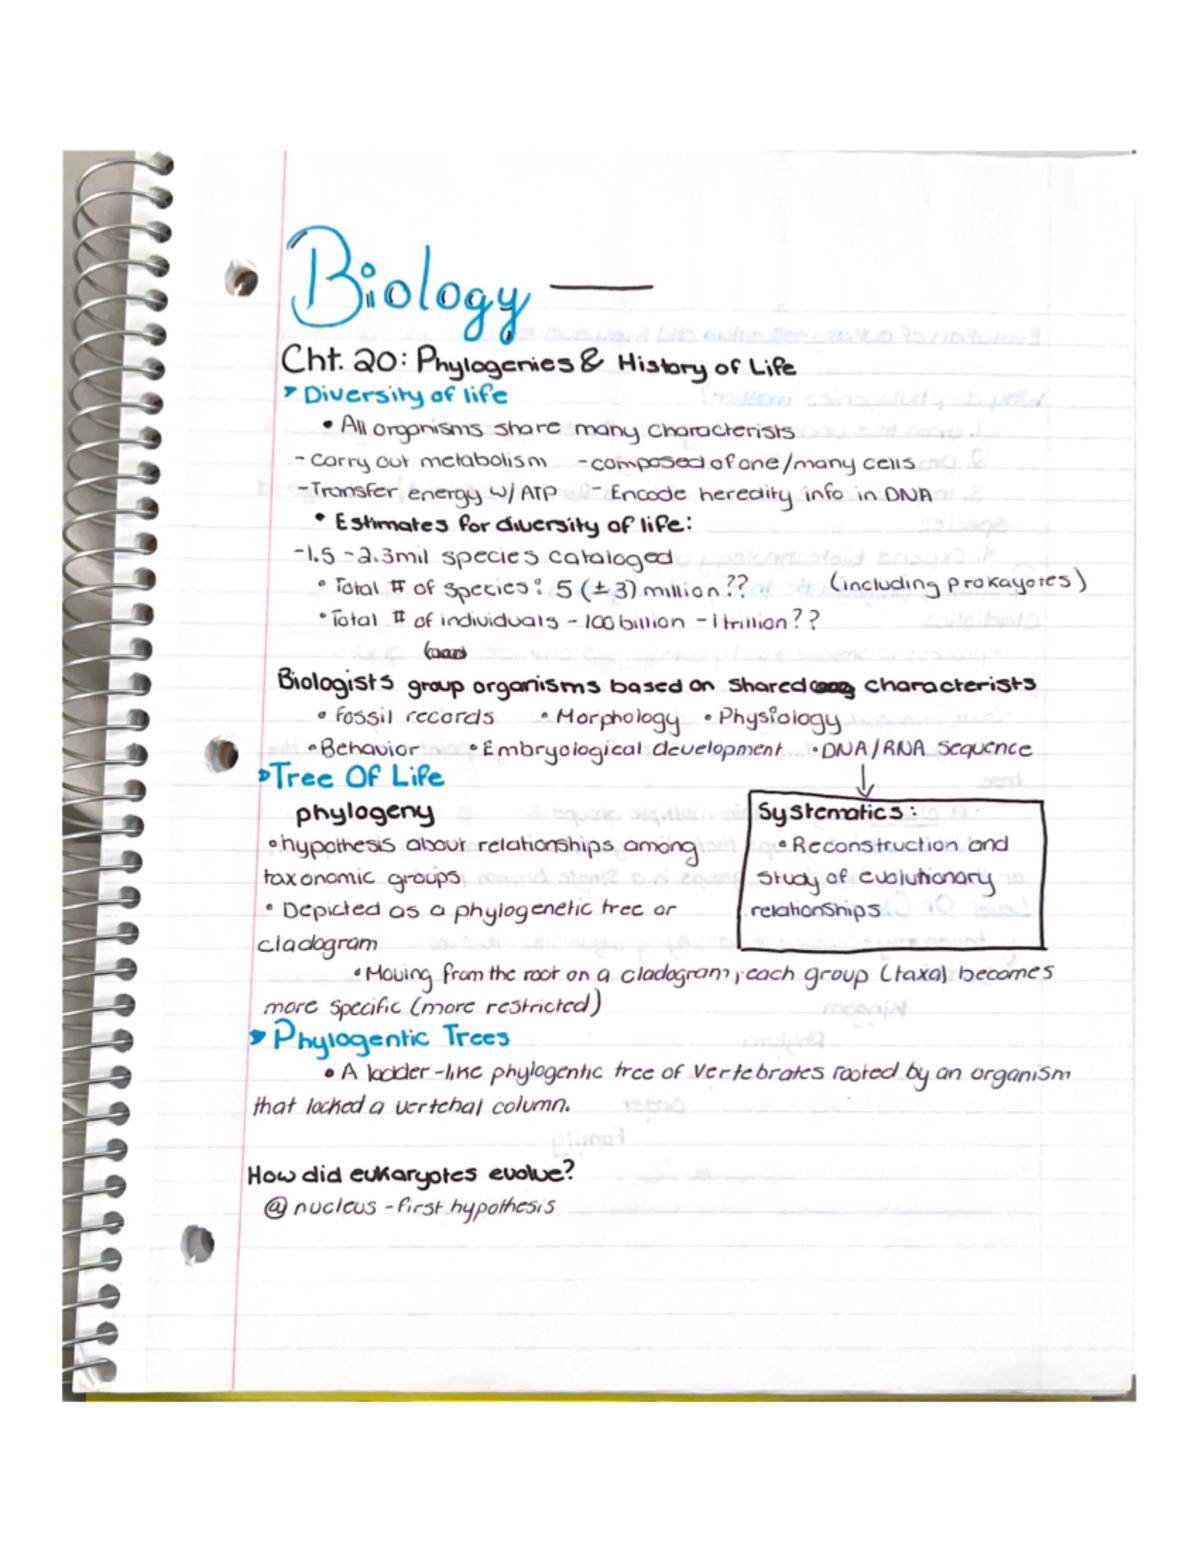 Biology
Cht. 20: Phylogenies & History of Life
Diversity of life
• All organisms share many characterists
- Carry out metabolism - composed of one/many cells
- Transfer energy w/ ATP - Encode heredity info in DNA
• Estimates for diversity of life:
- 1.5 - 2.3mil species cataloged
• Total # of species: 5 (± 3) million?? (including prokayotes)
• Total # of individuals - 100 billion - 1 trillion??
Biologists group organisms based on shared characterists
• Fossil records • Morphology • Physiology
• Behavior • Embryological development • DNA/RNA sequence
Tree Of Life
phylogeny
• hypothesis about relationships among
taxonomic groups
• Depicted as a phylogenetic tree or
cladogram
Systematics:
• Reconstruction and
study of evolutionary
relationships
• Moving from the root on a cladogram, each group (taxa) becomes
more specific (more restricted)
Phylogentic Trees
• A ladder-like phylogentic tree of vertebrates rooted by an organism
that lacked a column.
How did eukaryotes evolve?
@ nucleus - first hypothesis